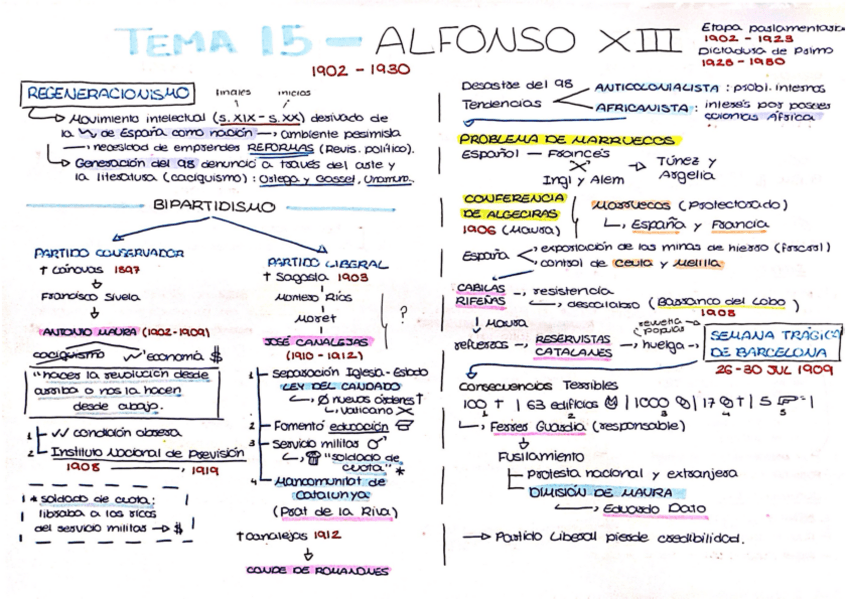 TEMA 15 - ALFONSO XIII
1902 - 1930
Etapa parlamentaria
1902 - 1923
Dictadura de Primo
1923 - 1930
REGENERACIONISMO
finales inicios
Movimiento intelectual (s. XIX - s. XX) derivado de
la de España como nación → ambiente pesimista
→ necesidad de emprender REFORMAS (Revis. político).
Generación del 98 denunció a través del arte y
la literatura (caciquismo) : Ortega y Gasset, Unamun.
BIPARTIDISMO
PARTIDO CONSERVADOR
† Cánovas 1897
Francisco Sivela
ANTONIO MAURA (1902-1909)
caciquismo economía $
"hacer la revolución desde
arriba o nos la hacen
desde abajo.
1 condición obrera
2 Instituto Nacional de Previsión
1908 1919
* soldado de cuota:
libraba a los ricos
del servicio militar → $
PARTIDO LIBERAL
† Sagasta 1903
Montero Ríos
Moret
?
JOSÉ CANALEJAS
(1910 - 1912)
1 separación Iglesia-Estado
LEY DEL CANDADO
Ø nuevos órdenes ↑
vaticano X
2 Fomento educación
3 Servicio militar ♂
"soldado de
cuota" *
4 Mancomunitat de
Catalunya
(Prat de la Riva)
† Canalejas 1912
CONDE DE ROMANONES
Desastre del 98
Tendencias
ANTICOLONIALISTA : probl. internos
AFRICANISTA : interés por poseer
colonias África
PROBLEMA DE MARRUECOS
Español - Francés
Ingl y Alem
→ Túnez y
Argelia
CONFERENCIA
DE ALGECIRAS
1906 (Maura)
Marruecos (Protectorado)
España y Francia
España
exportación de las minas de hierro (ferrocarril)
control de Ceuta y Melilla
CABILAS
RIFEÑAS
→ resistencia
descalabro (Barranco del Lobo)
1908
Maura
refuerzos → RESERVISTAS
CATALANES
→ huelga →
revuelta
popular
SEMANA TRÁGICA
DE BARCELONA
26-30 JUL 1909
Consecuencias Terribles
100 † | 63 edificios | 1000 | 17 † | 5 |
1 2 3 4 5
Ferrer Guardia (responsable)
Fusilamiento
Protesta nacional y extranjera
DIMISIÓN DE MAURA
Eduardo Dato
→ Partido Liberal pierde credibilidad.